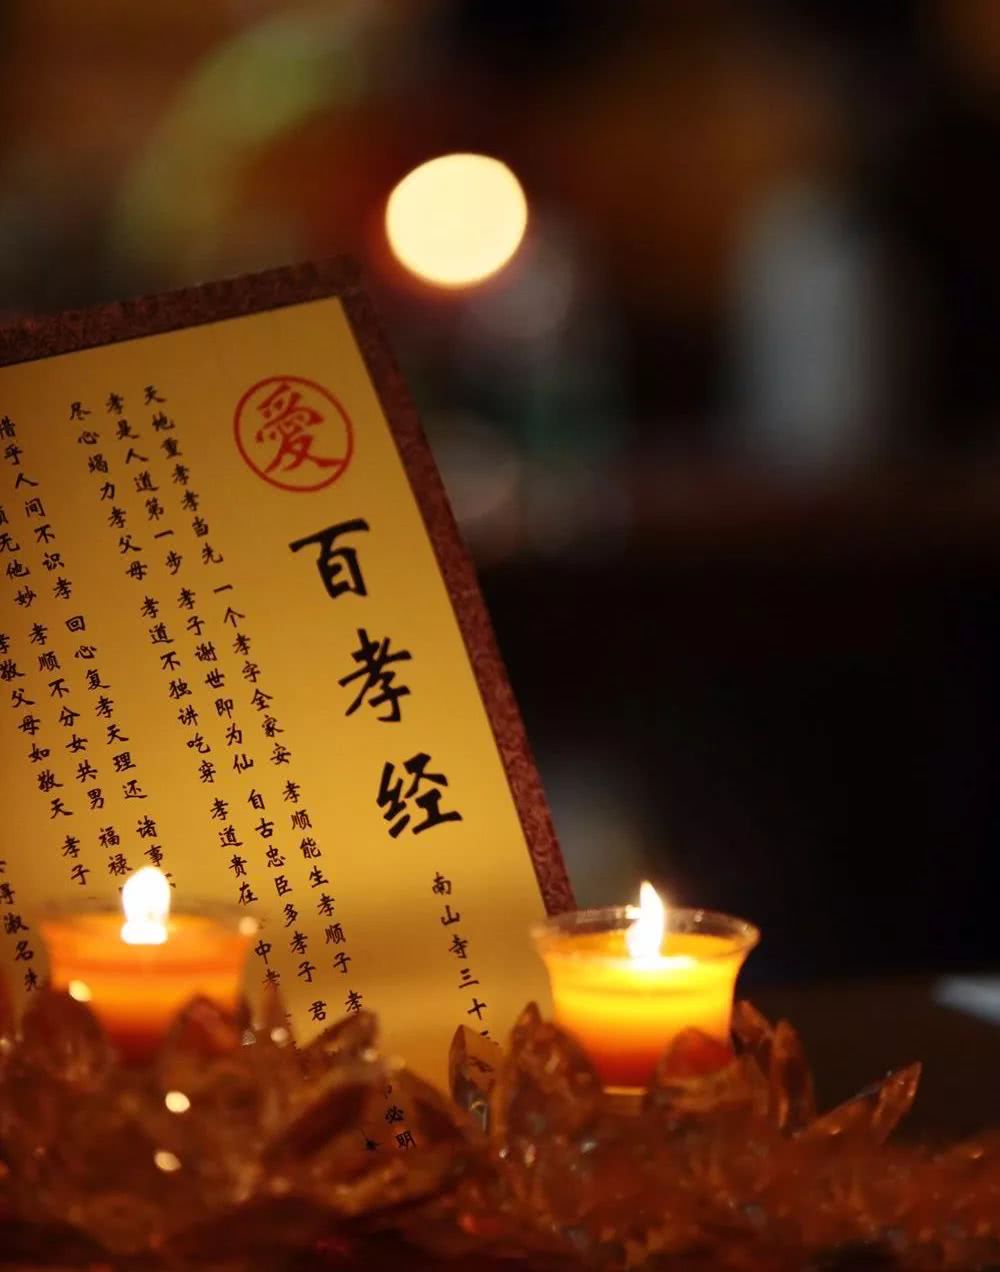 愛
百孝经
南山寺三十
天地重孝孝当先 一个孝字全家安 孝顺能生孝顺子 孝
必明
孝是人道第一步 孝子谢世即为仙 自古忠臣多孝子 君
尽心竭力孝父母 孝道不独讲吃穿 孝道贵在 中孝
惜乎人间不识孝 回心复孝天理还 诸事
顺无他妙 孝顺不分女共男 福禄
孝敬父母如敬天 孝子
得淑名先